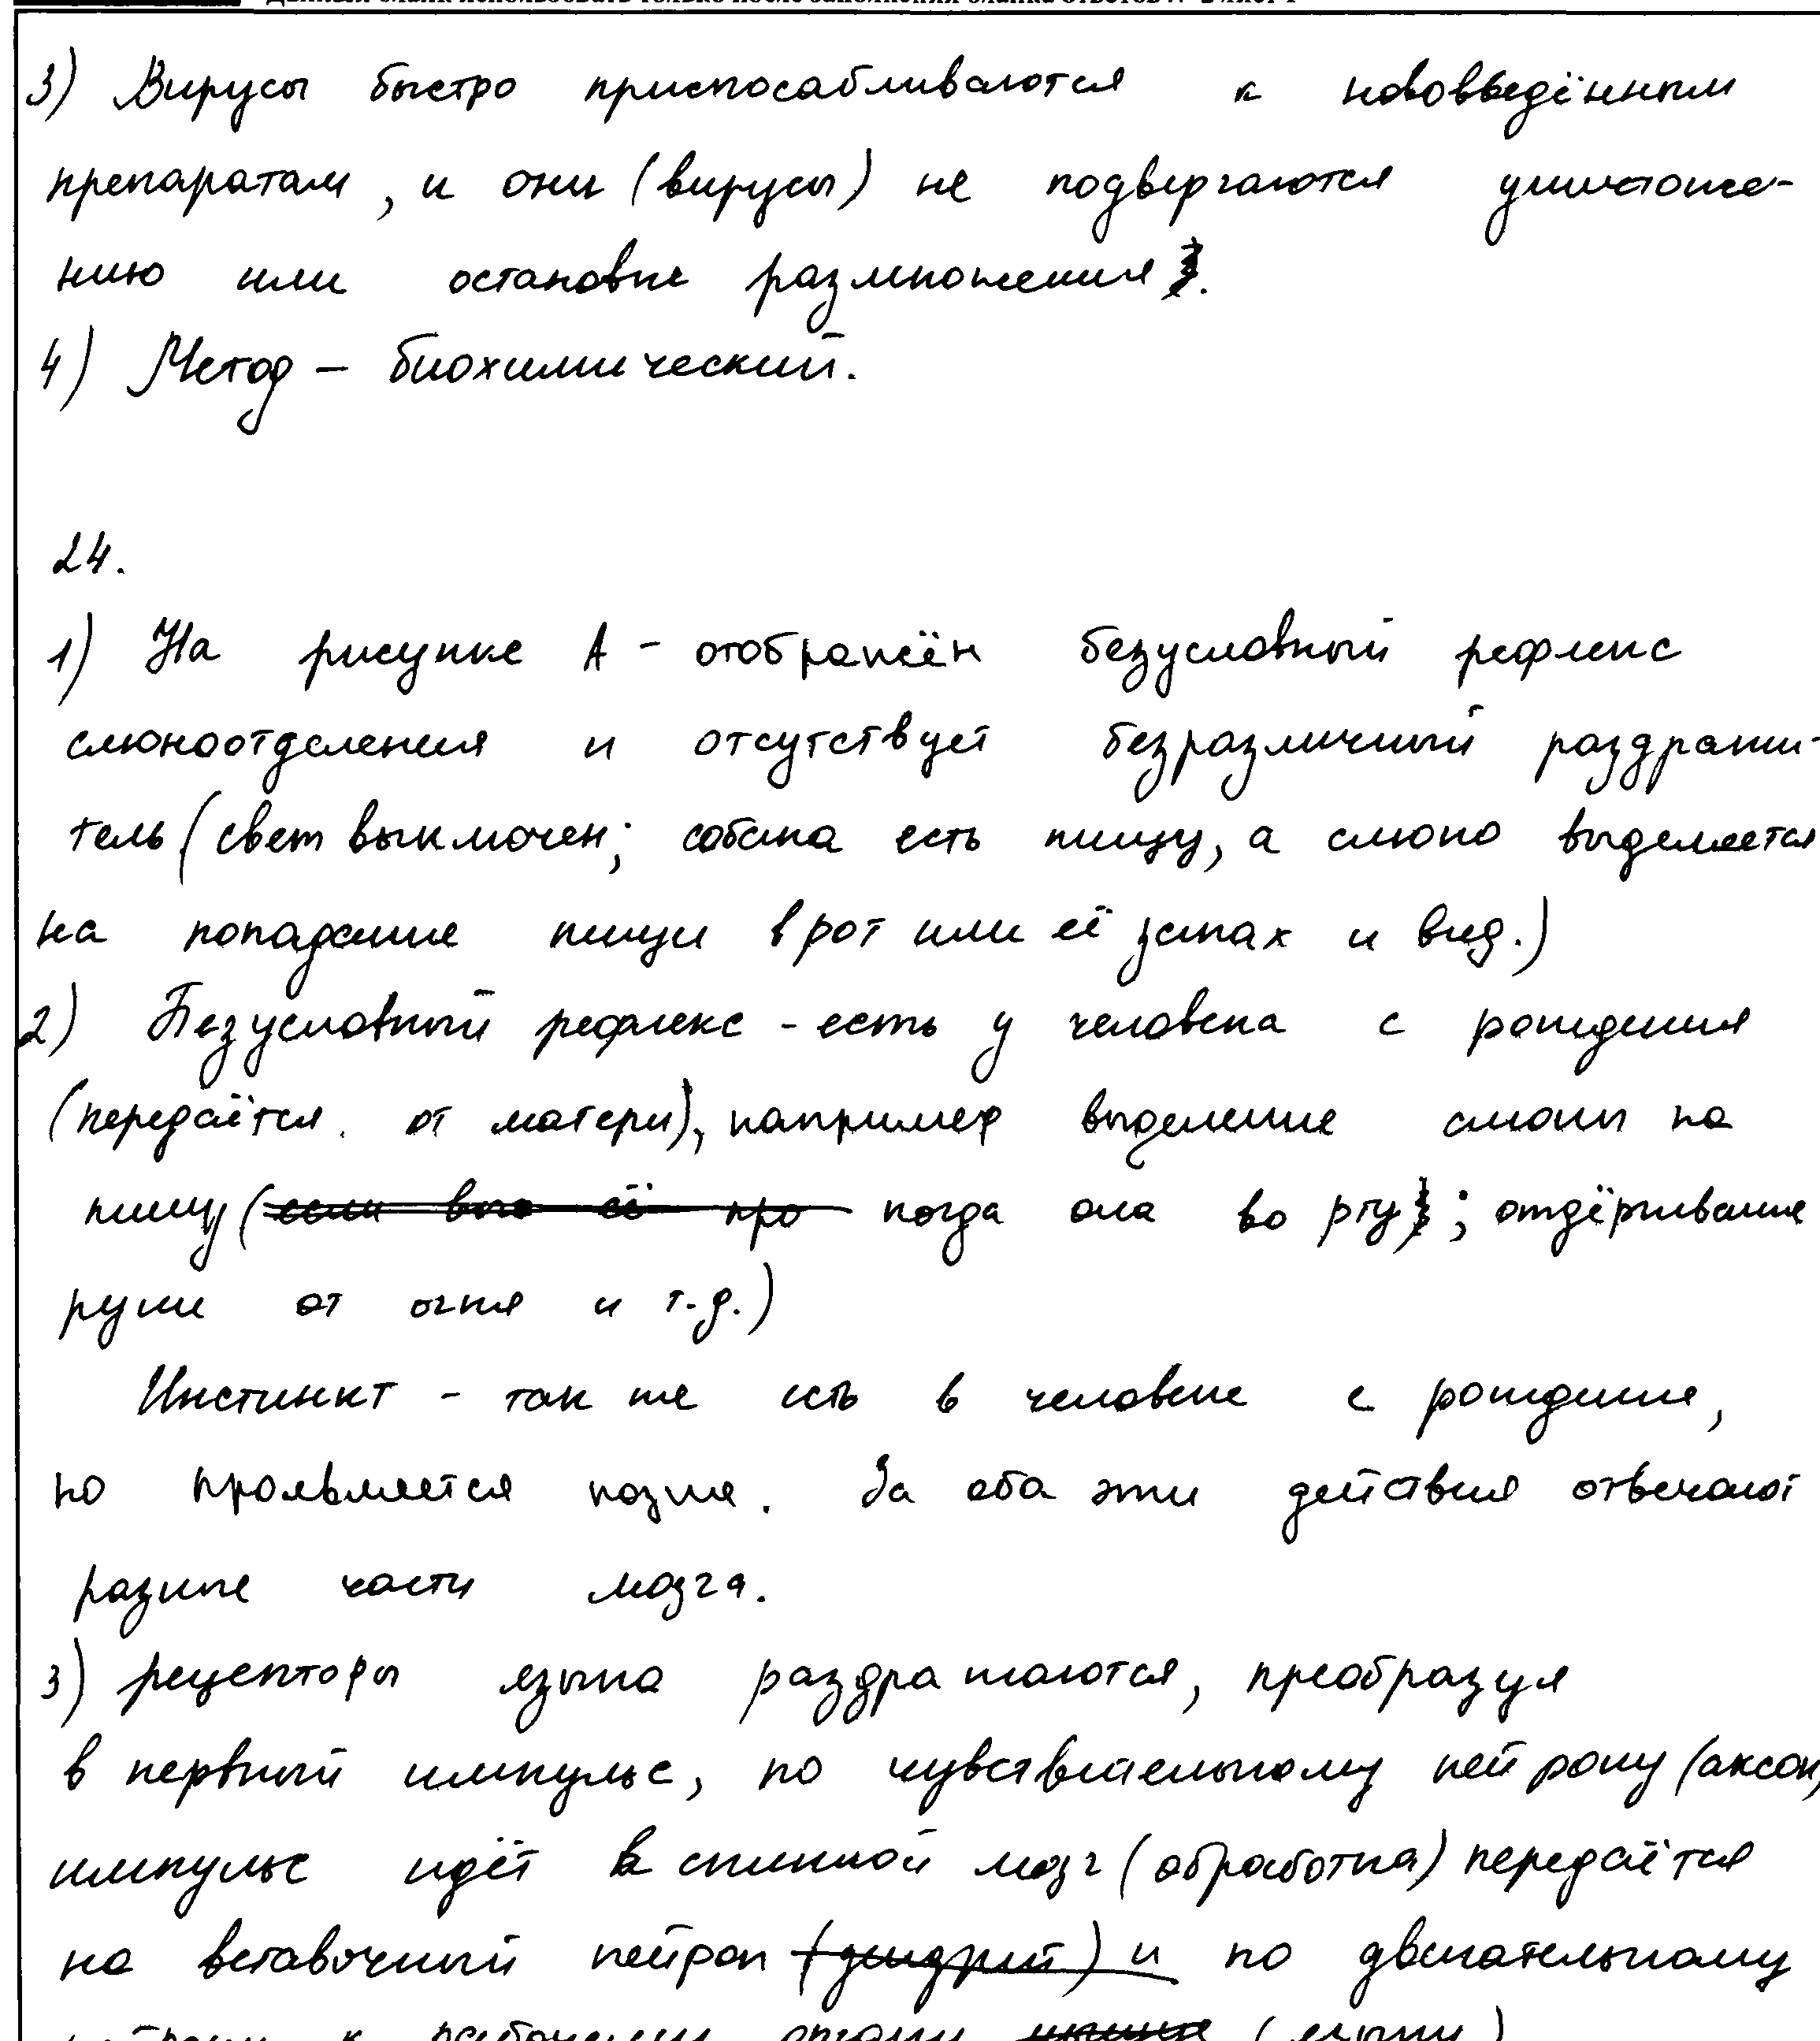 3) Вирусы быстро приспосабливаются к нововведённым
препаратам, и они (вирусы) не подвергаются уничтоже-
нию или остановке размножения.
4) Метод – биохимический.
24.
1) На рисунке А - отображён безусловный рефлекс
слюноотделения и отсутствует безразличный раздражи-
тель (свет выключен; собака есть пищу, а слюна выделяется
на попадание пищи в рот или её запах и вид.)
2) Безусловный рефлекс - есть у человека с рождения
(передаётся от матери), например выделение слюны на
пищу (когда она во рту; отдёргивание
руки от огня и т.д.)
Инстинкт - так же есть в человеке с рождение,
но проявляется позже. За оба эти действия отвечают
разные части мозга.
3) рецепторы языка раздражаются, преобразуя
в нервный импульс, по чувствительному нейрону (аксон)
импульс идёт в спинной мозг (обработка) передаётся
на вставочный нейрон по двигательному
к рабочему органу